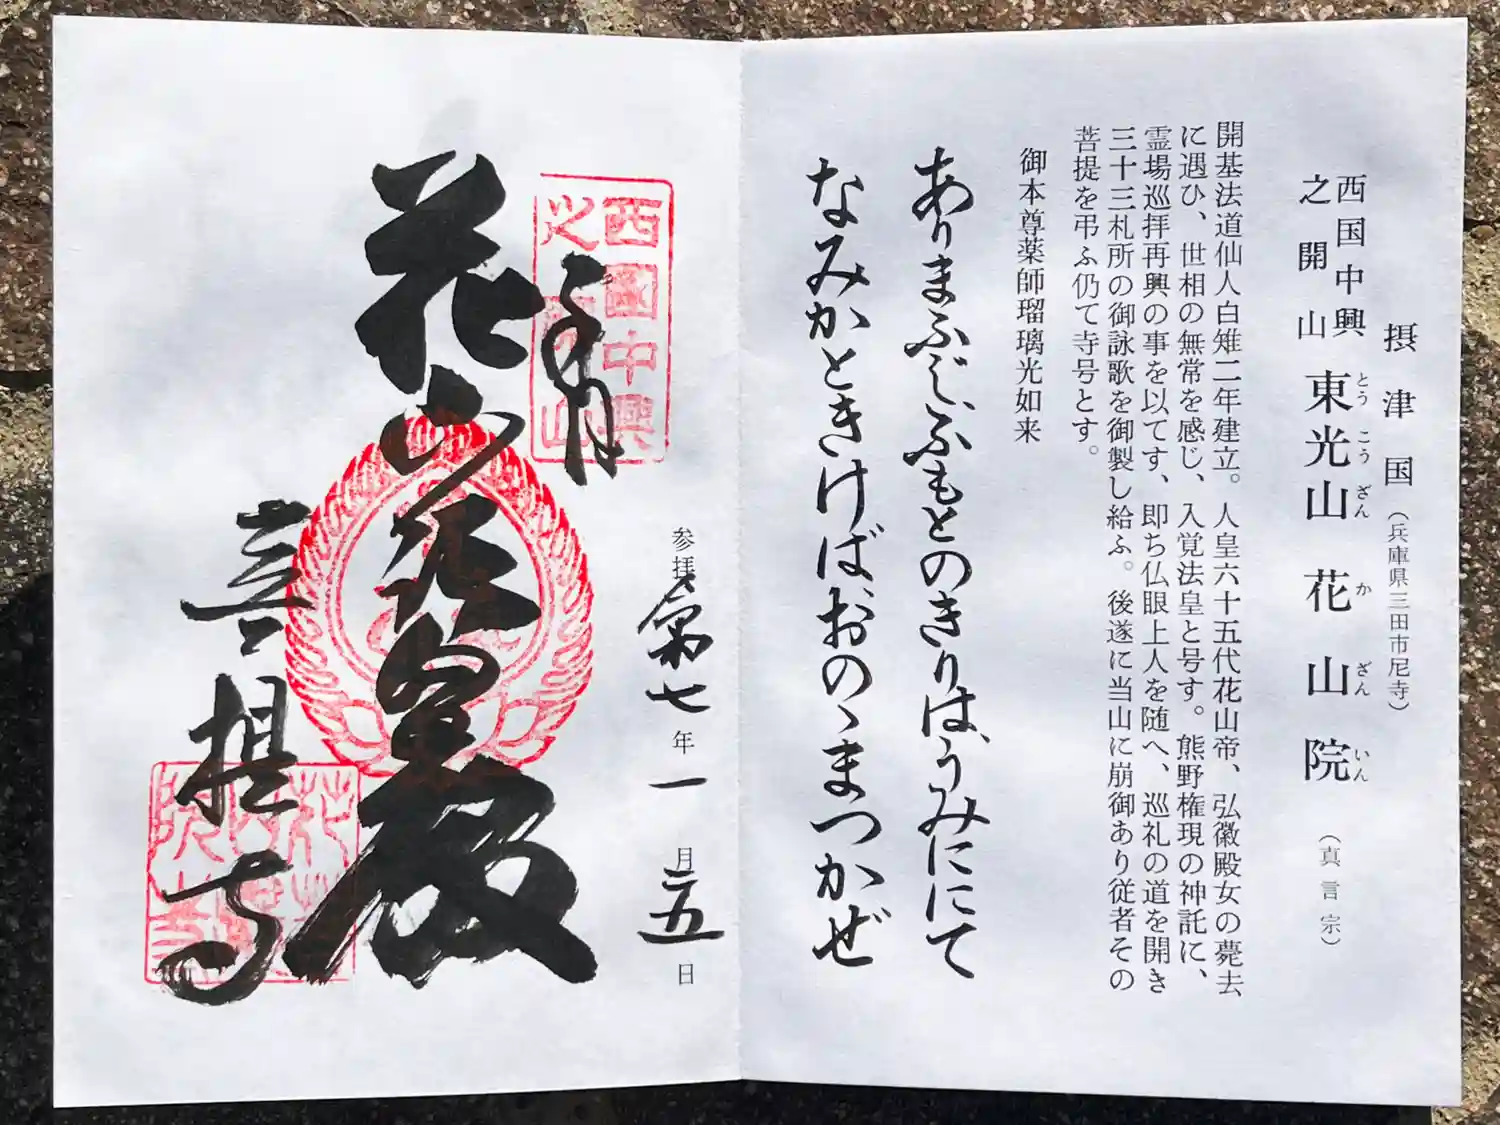 摂津国（兵庫県三田市尼寺）
西国中興
之開山
東光山 花山院（真言宗）
とうこうざん かざんいん
開基法道仙人白雉二年建立。人皇六十五代花山帝、弘徽殿女の薨去
に遇ひ、世相の無常を感じ、入覚法皇と号す。熊野権現の神託に、
霊場巡拝再興の事を以てす、即ち仏眼上人を随へ、巡礼の道を開き
三十三札所の御詠歌を御製し給ふ。後遂に当山に崩御あり従者その
菩提を弔ふ仍て寺号とす。
御本尊薬師瑠璃光如来
ありまふじふもとのきりは、うみににて
なみかときけばおのゝまつかぜ
西國中興
之開山
参拝
七年一月二五日
花山法皇殿
菩提寺